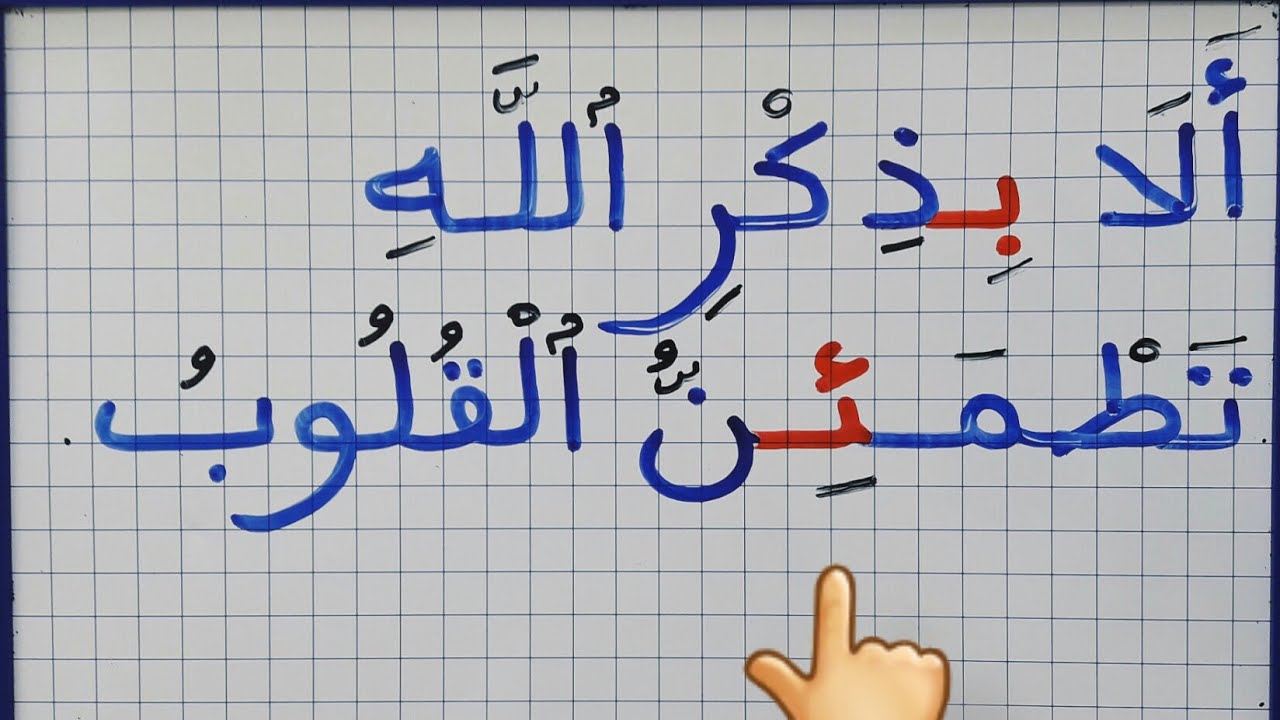 أَلَا بِذِكْرِ ٱللَّهِ
تَطْمَئِنُّ ٱلْقُلُوبُ.